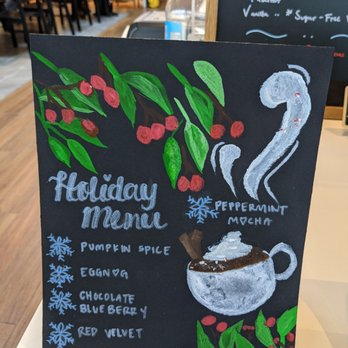 Vanilla .. * Sugar-Free V
Holiday
Menu
PEPPERMINT
MOCHA
PUMPKIN SPICE
EGGNOG
CHOCOLATE
BLUEBERRY
RED VELVET